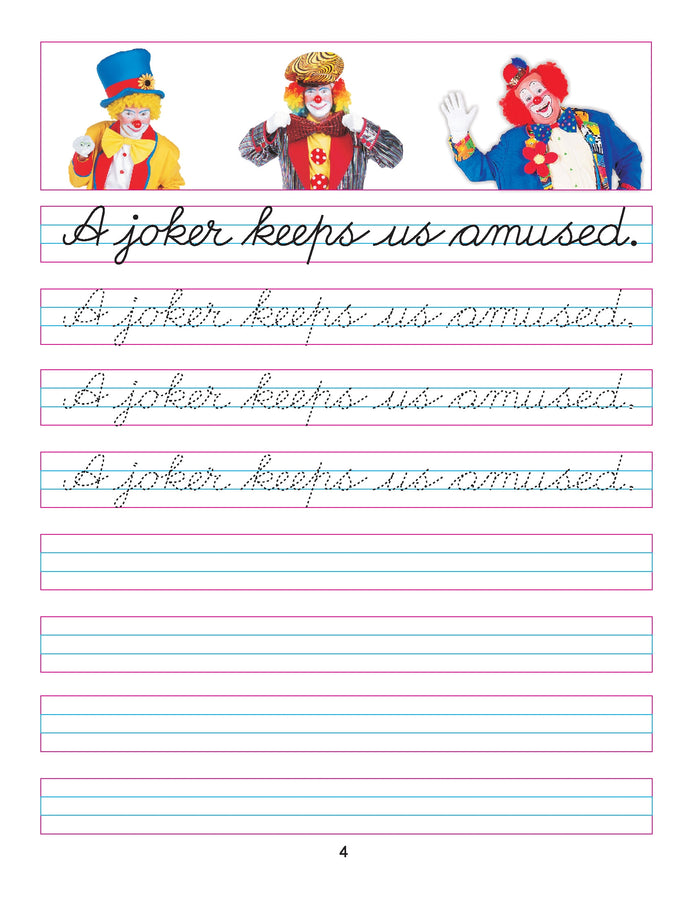 A joker keeps us amused.
A joker keeps us amused.
A joker keeps us amused.
A joker keeps us amused.
4